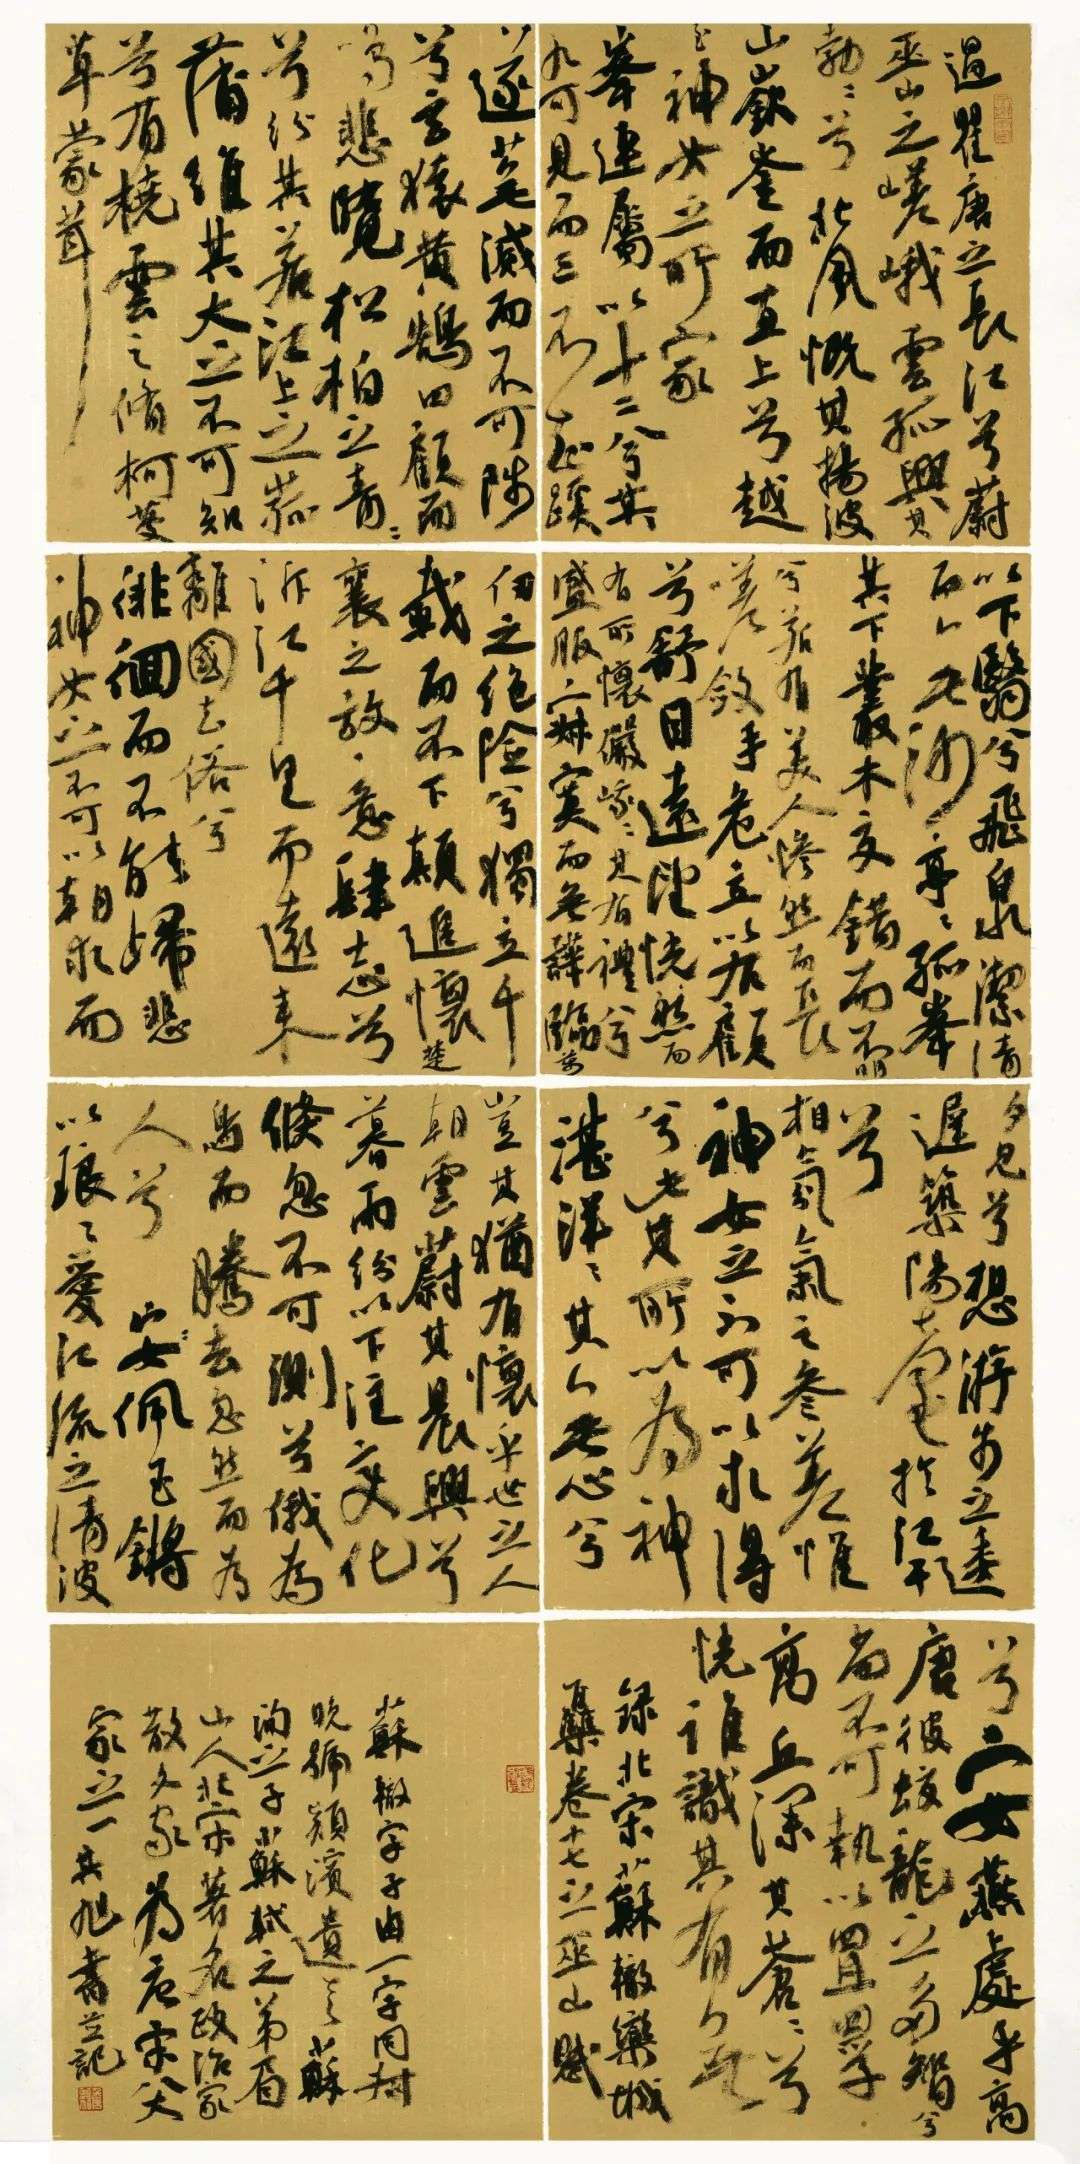 過瞿唐之長江兮蔚
巫山之嵯峨雲孤興其
勃〻兮北風慨其揚波
山嶔崟而直上兮越
至神女之所家
峯連屬以十二兮其
九可見而三不知蹊
遂蕪滅而不可陟
兮玄猿黃鵠四顧而
鳴悲覽松柏之青〻
兮紛其若江上之菰
蒲維其大之不可知
兮有橈雲之脩柯蔓
草蒙茸
以下翳兮飛泉潔清
而無沙亭〻孤峯
其下叢木交錯而不明
兮若有美人慘然而長
嗟斂手危立以右顧
兮舒目遠望恍然而
有所懷儼峨〻其有禮兮
盛服寂寞而無譁臨萬
仞之絕險兮獨立千
載而不下顛追懷楚
襄之放意肆志兮
泝江千里而遠来
離國去俗兮
徘徊而不能歸悲
神女之不可以朝求而
夕見兮想游步之逶
遲築陽臺於江干
兮
相氛氣之參差惟
神女之不可以求得
兮此其所以為神
湛洋〻其無心兮
豈其猶有懷乎世之人
朝雲蔚其晨興兮
暮雨紛以下注變化
倏忽不可測兮俄為
鳥而騰去忽然而為
人兮 佩玉鏘
以琅〻愛江流之清波
兮安燕處乎高
唐彼蛟龍之多智兮
尚不可執以罝罘
高丘深其蒼〻兮
恍誰識其有無
録北宋蘇轍欒城
集卷十七之巫山賦
蘇轍字子由一字同叔
晚號潁濱遺老蘇
洵之子蘇軾之弟眉
山人北宋著名政治家
散文家為唐宋八大
家之一 旭書並記